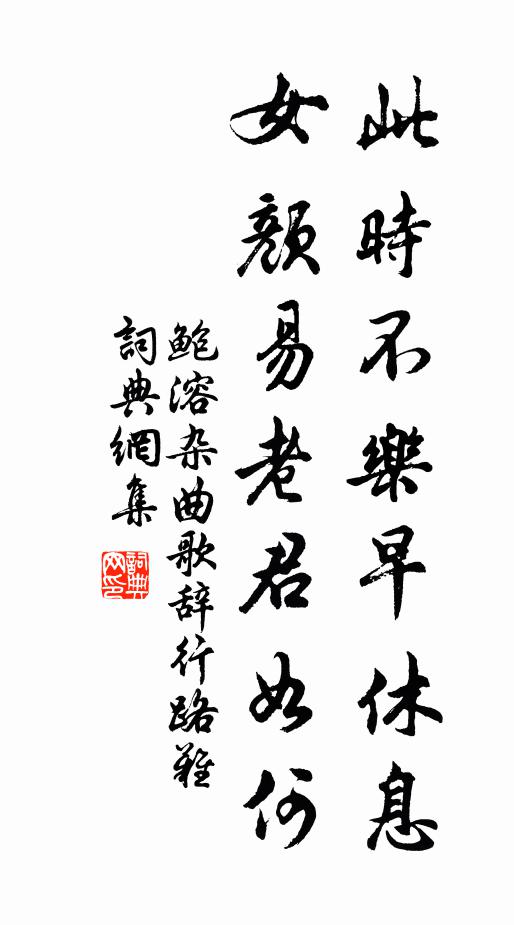 此時不樂早休息
女顏易老君如何
鲍溶杂曲歌辞行路難
詞典網集
詞典網印